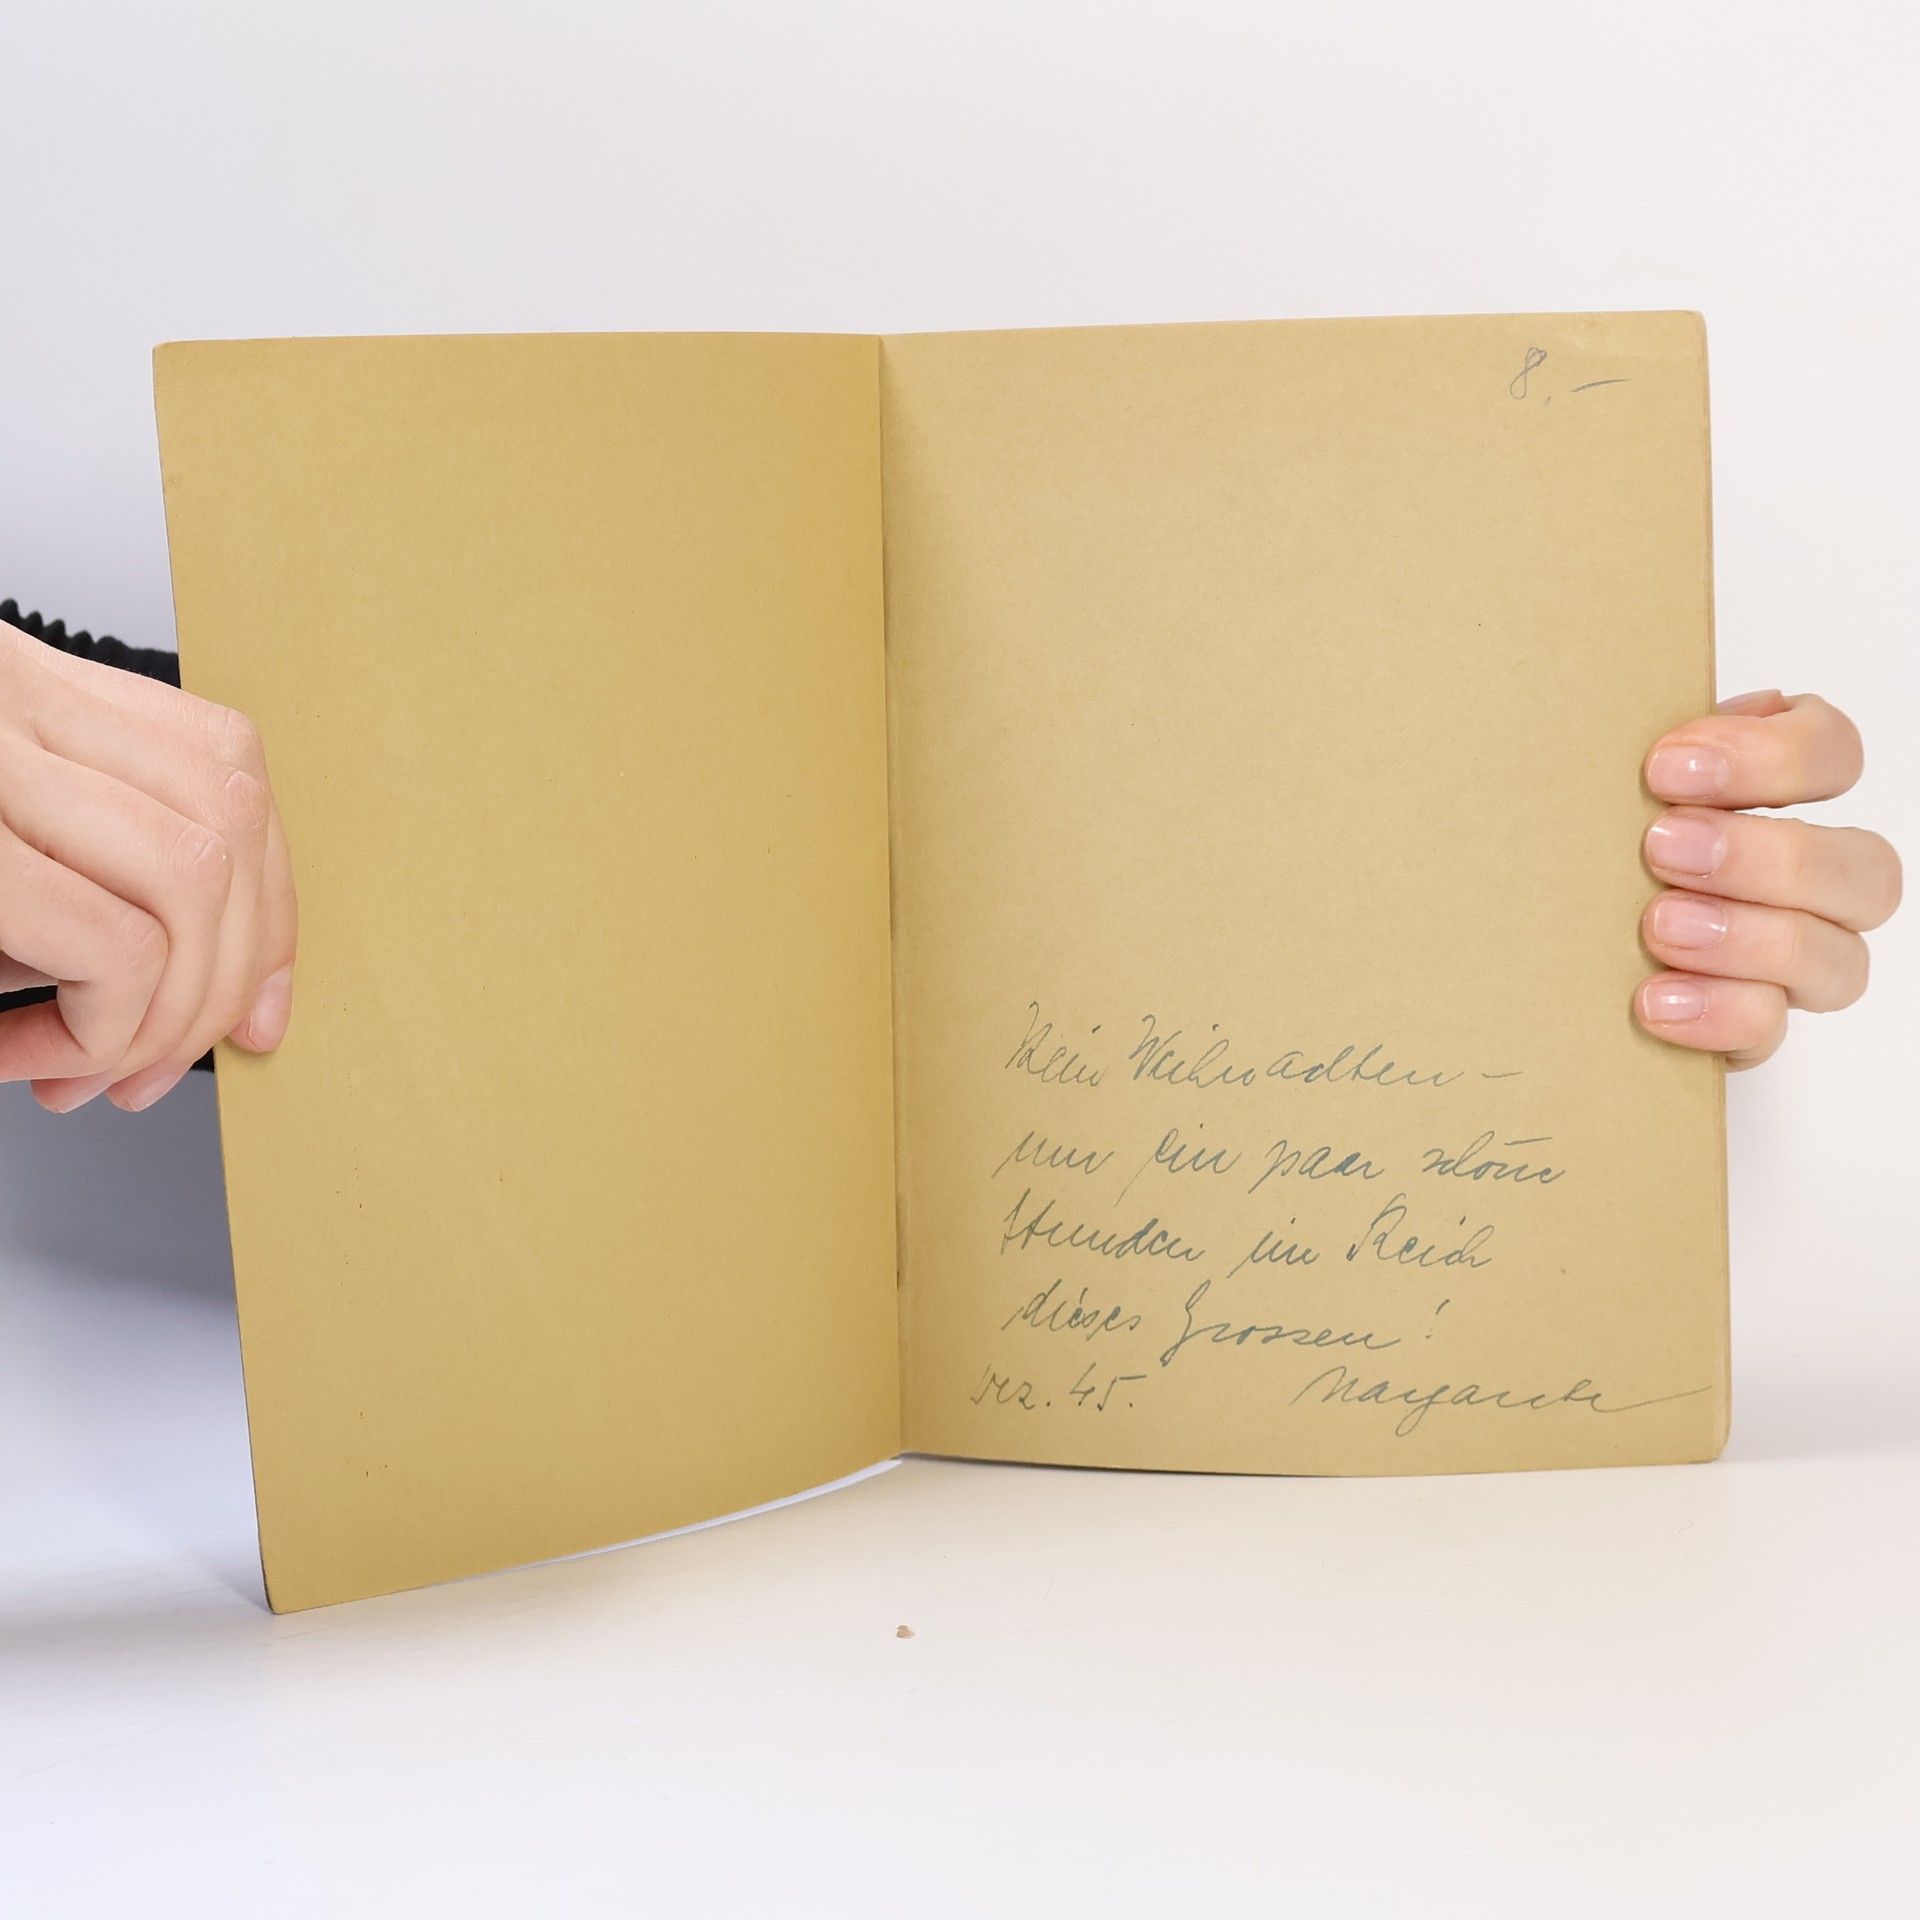 8.-
Kein Weihnachten -
nur ein paar schöne
Stunden im Reich
dieses Grossen!
Dez. 45. Margarete